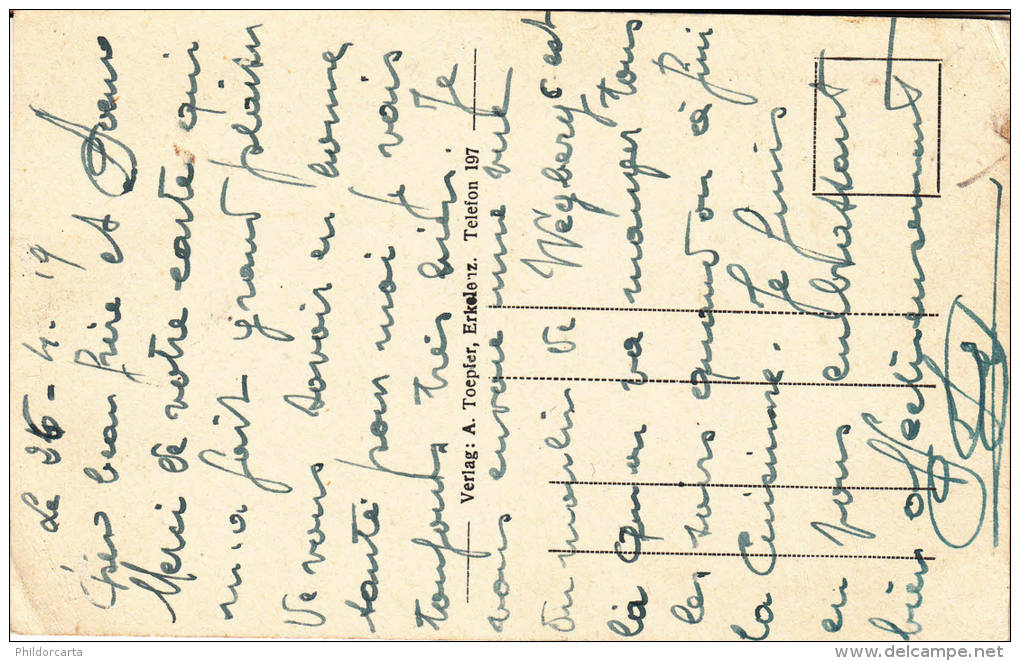 Le 26-4. 19
Cher beau frère et Soeur
Merci de votre carte qui
m'a fait grand plaisir
de vous savoir en bonne
santé pour moi je vais
toujours très bien. Je
vous envoie une vue
du moulin de Wegberg c'est
là qu'on va manger tous
les soirs quand on a fini
la Cuisine. Je finis
en vous embrassant
bien affectueusement
Verlag: A. Toepfer, Erkelenz. Telefon 197
Phildorcarta
delcampe.net